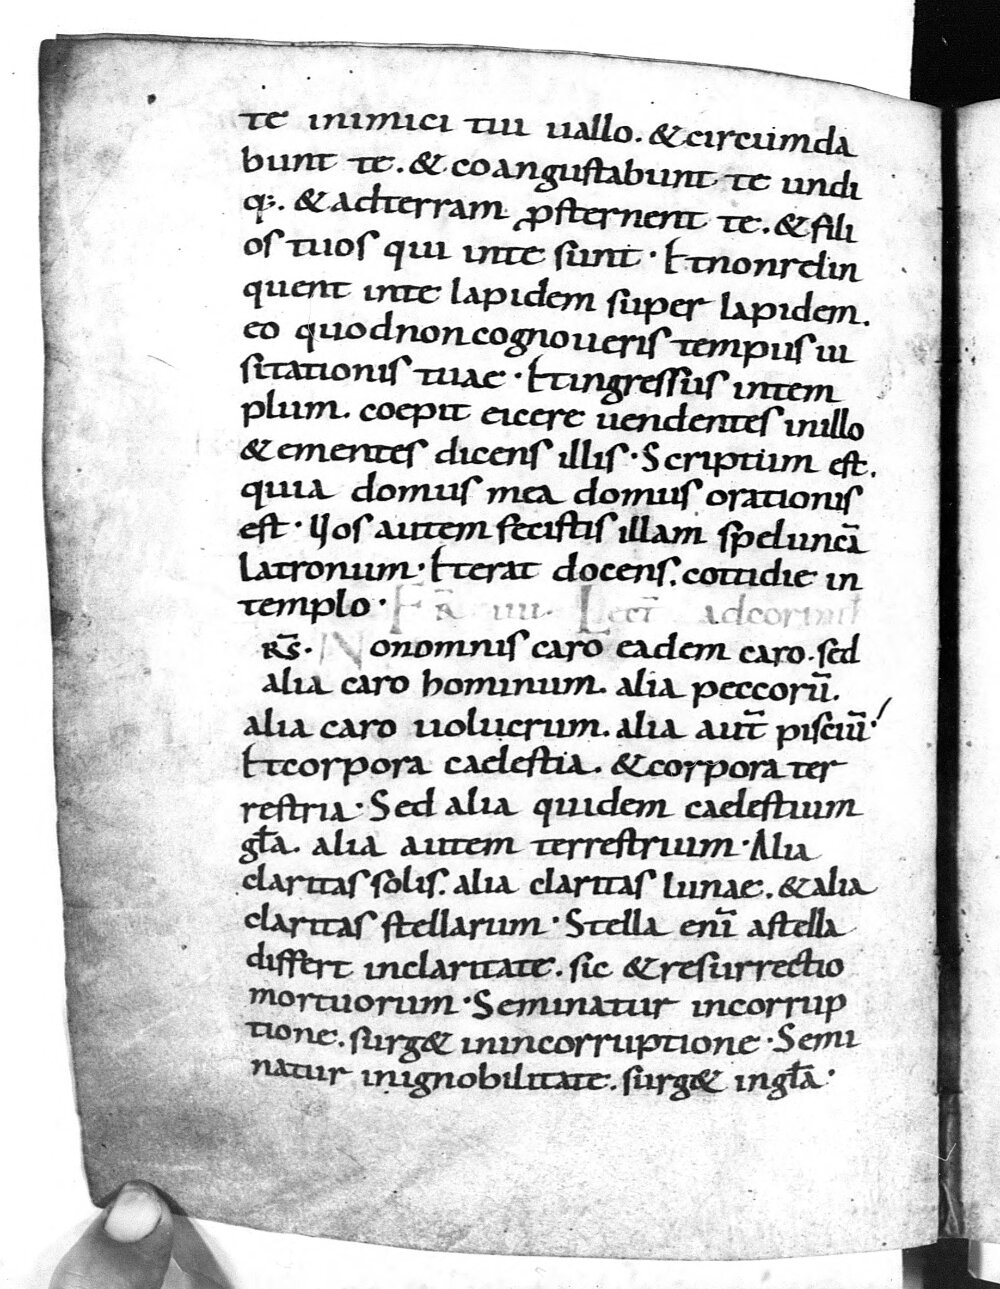 te inimici tui uallo. & circumda
bunt te. & coangustabunt te undi
q;. & adterram ꝓsternent te. & fili
os tuos qui inte sunt · Et non relin
quent inte lapidem super lapidem.
eo quod non cognoueris tempus ui
sitationis tuae · Et ingressus intem
plum. coepit eicere uendentes inillo
& ementes dicens illis · Scriptum est.
quia domus mea domus orationis
est · Uos autem fecistis illam speluncā
latronum · Et erat docens. cottidie in
templo · Fr̄ iiii. Lect̄ adcorinth
Rs̄. Non omnis caro eadem caro. sed
alia caro hominum. alia peccorū.
alia caro uolucrum. alia aut̄ pisciū·
Et corpora caelestia. & corpora ter
restria · Sed alia quidem caelestium
gła. alia autem terrestrium · Alia
claritas solis. alia claritas lunae. & alia
claritas stellarum · Stella enī astella
differt inclaritate. sic & resurrectio
mortuorum · Seminatur incorrup
tione. surg& inincorruptione · Semi
natur inignobilitate. surg& ingła ·